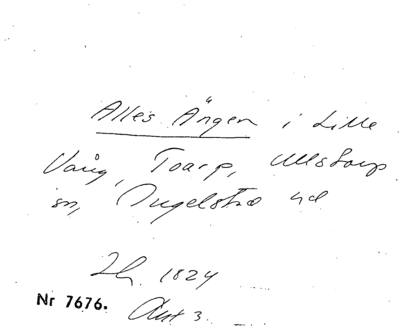 Alles Ången i Lille
Vång, Toarp, Ullstorp
sn, Ingelstad hd
Lh. 1824
Nr 7676. Akt 3.